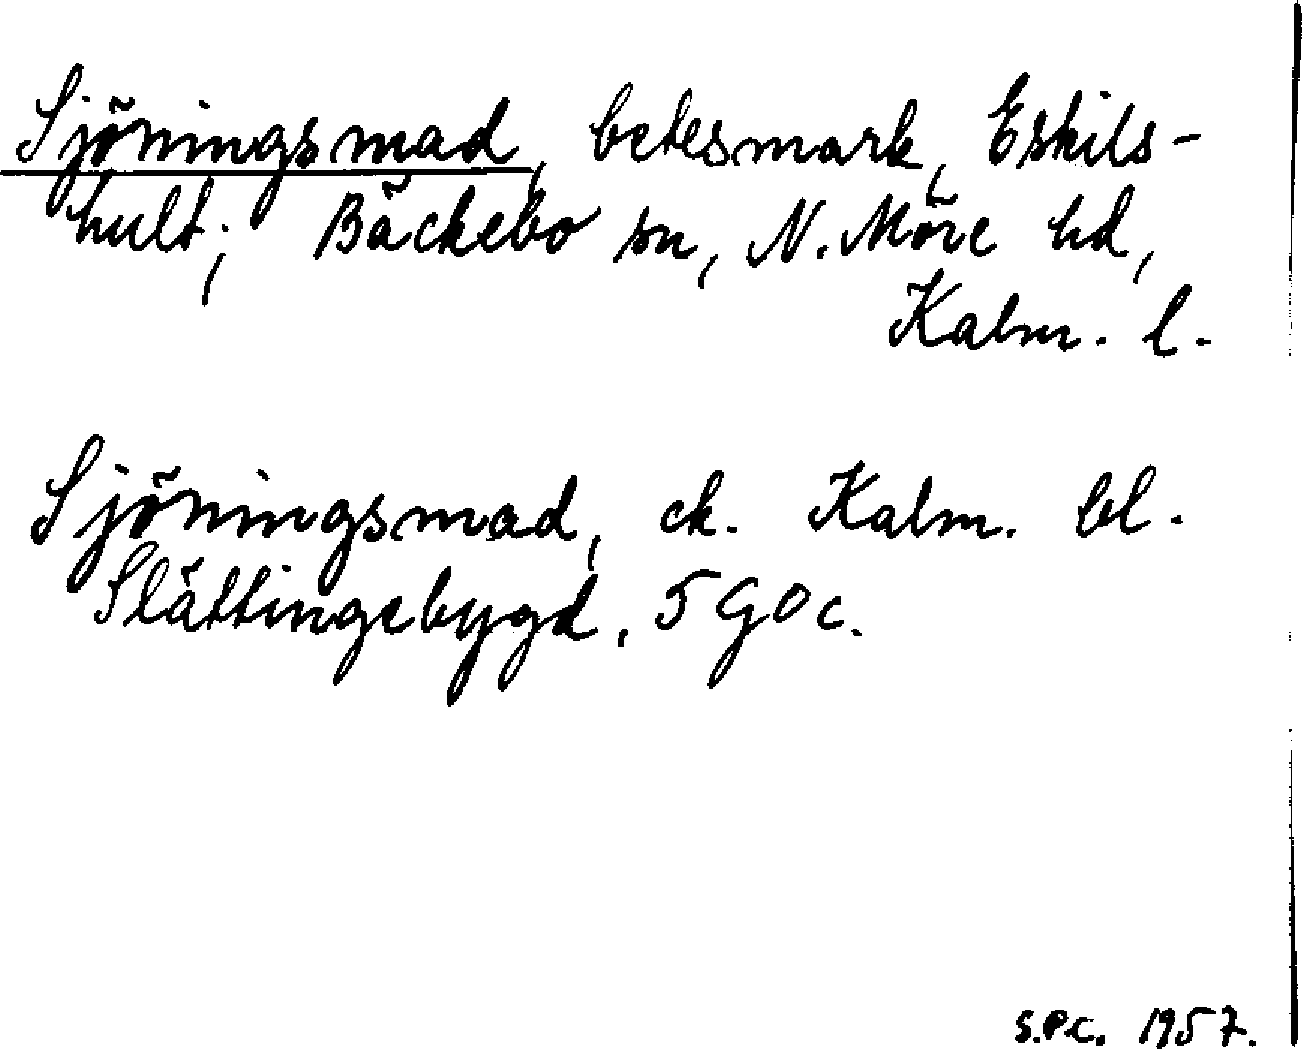 Sjöningsmad, betesmark, Eskils-
hult; Bäckebo sn, N. Möre hd,
Kalm. l.
Sjöningsmad, ek. Kalm. bl.
Slättingebygd, 5 G o c.
S.P.C. 1957.